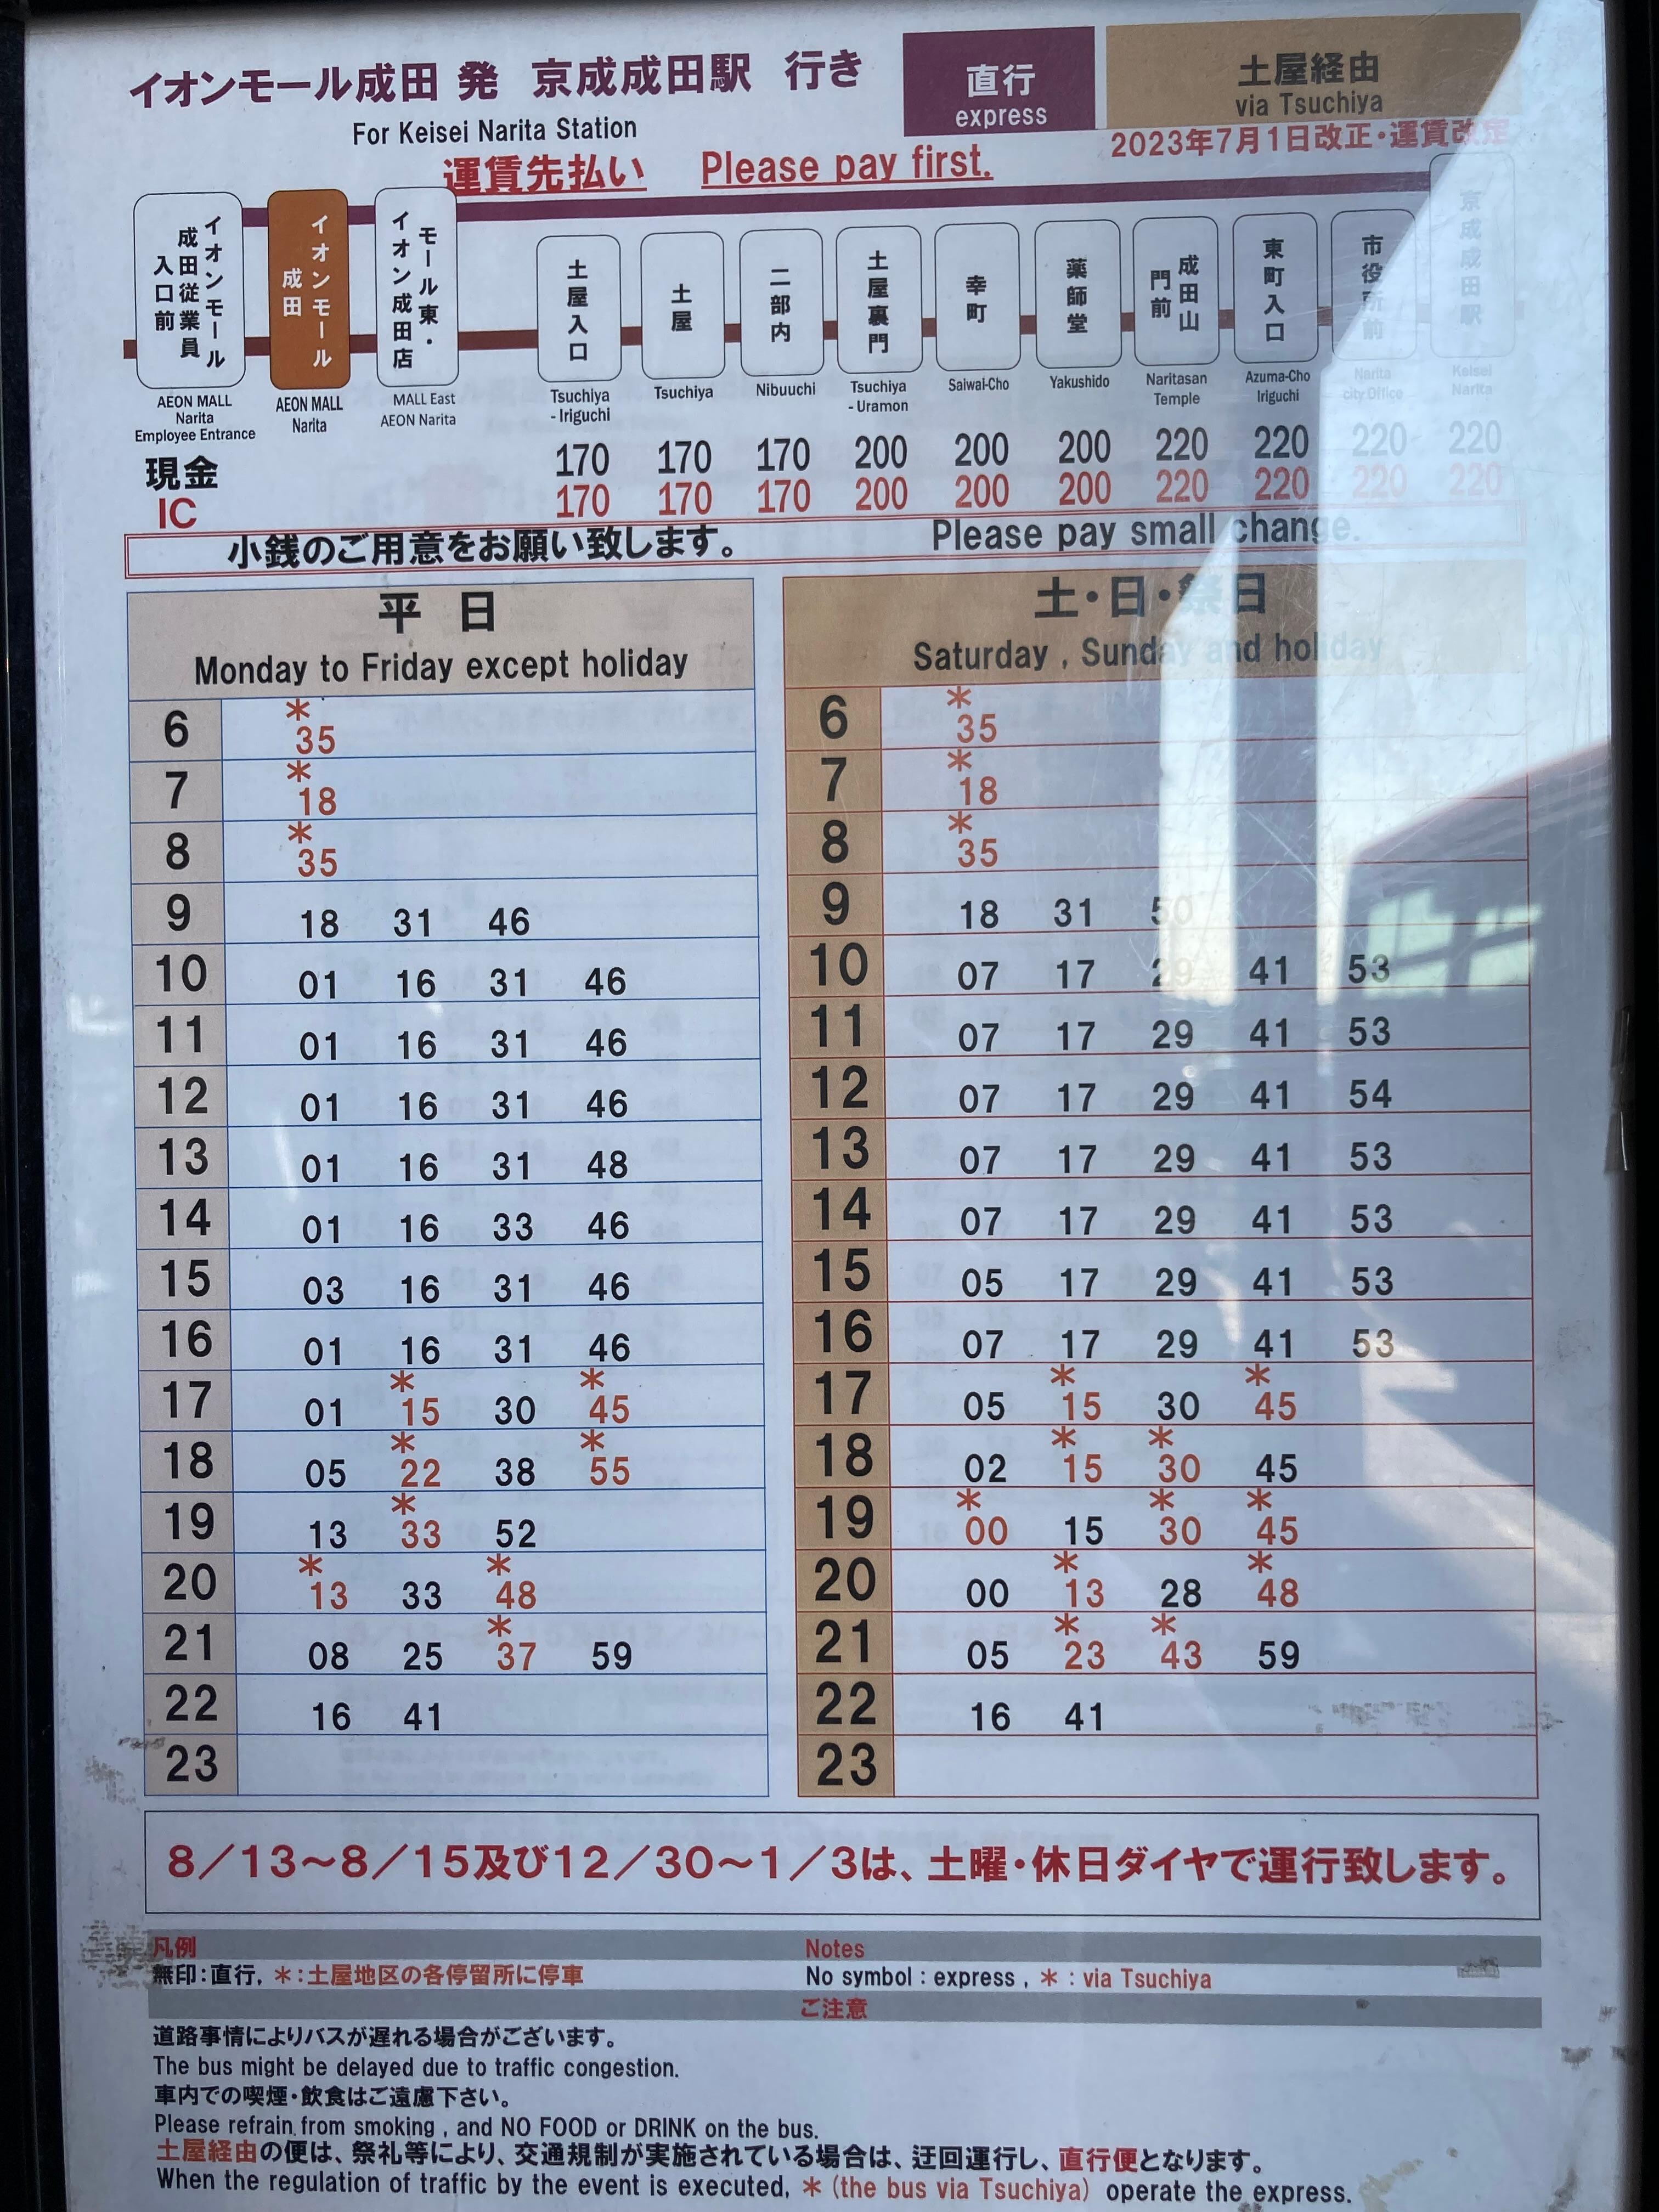 イオンモール成田 発 京成成田駅 行き
For Keisei Narita Station
直行
express
土屋経由
via Tsuchiya
2023年7月1日改正・運賃改定
運賃先払い Please pay first.
イオンモール成田従業員入口前
イオンモール成田
モール東・イオン成田店
土屋入口
土屋
二部内
土屋裏門
幸町
薬師堂
成田山門前
東町入口
市役所前
京成成田駅
AEON MALL Narita Employee Entrance
AEON MALL Narita
MALL East AEON Narita
Tsuchiya - Iriguchi
Tsuchiya
Nibuuchi
Tsuchiya - Uramon
Saiwai-Cho
Yakushido
Naritasan Temple
Azuma-Cho Iriguchi
Narita city Office
Keisei Narita
現金 170 170 170 200 200 200 220 220 220 220
IC 170 170 170 200 200 200 220 220 220 220
小銭のご用意をお願い致します。 Please pay small change.
平 日
Monday to Friday except holiday
6 *35
7 *18
8 *35
9 18 31 46
10 01 16 31 46
11 01 16 31 46
12 01 16 31 46
13 01 16 31 48
14 01 16 33 46
15 03 16 31 46
16 01 16 31 46
17 01 *15 30 *45
18 05 *22 38 *55
19 13 *33 52
20 *13 33 *48
21 08 25 *37 59
22 16 41
23
土・日・祭日
Saturday , Sunday and holiday
6 *35
7 *18
8 *35
9 18 31 50
10 07 17 29 41 53
11 07 17 29 41 53
12 07 17 29 41 54
13 07 17 29 41 53
14 07 17 29 41 53
15 05 17 29 41 53
16 07 17 29 41 53
17 05 *15 30 *45
18 02 *15 *30 45
19 *00 15 *30 *45
20 00 *13 28 *48
21 05 *23 *43 59
22 16 41
23
8/13～8/15及び12/30～1/3は、土曜・休日ダイヤで運行致します。
凡例 Notes
無印：直行，＊：土屋地区の各停留所に停車 No symbol : express , * : via Tsuchiya
ご注意
道路事情によりバスが遅れる場合がございます。
The bus might be delayed due to traffic congestion.
車内での喫煙・飲食はご遠慮下さい。
Please refrain from smoking , and NO FOOD or DRINK on the bus.
土屋経由の便は、祭礼等により、交通規制が実施されている場合は、迂回運行し、直行便となります。
When the regulation of traffic by the event is executed, * (the bus via Tsuchiya) operate the express.